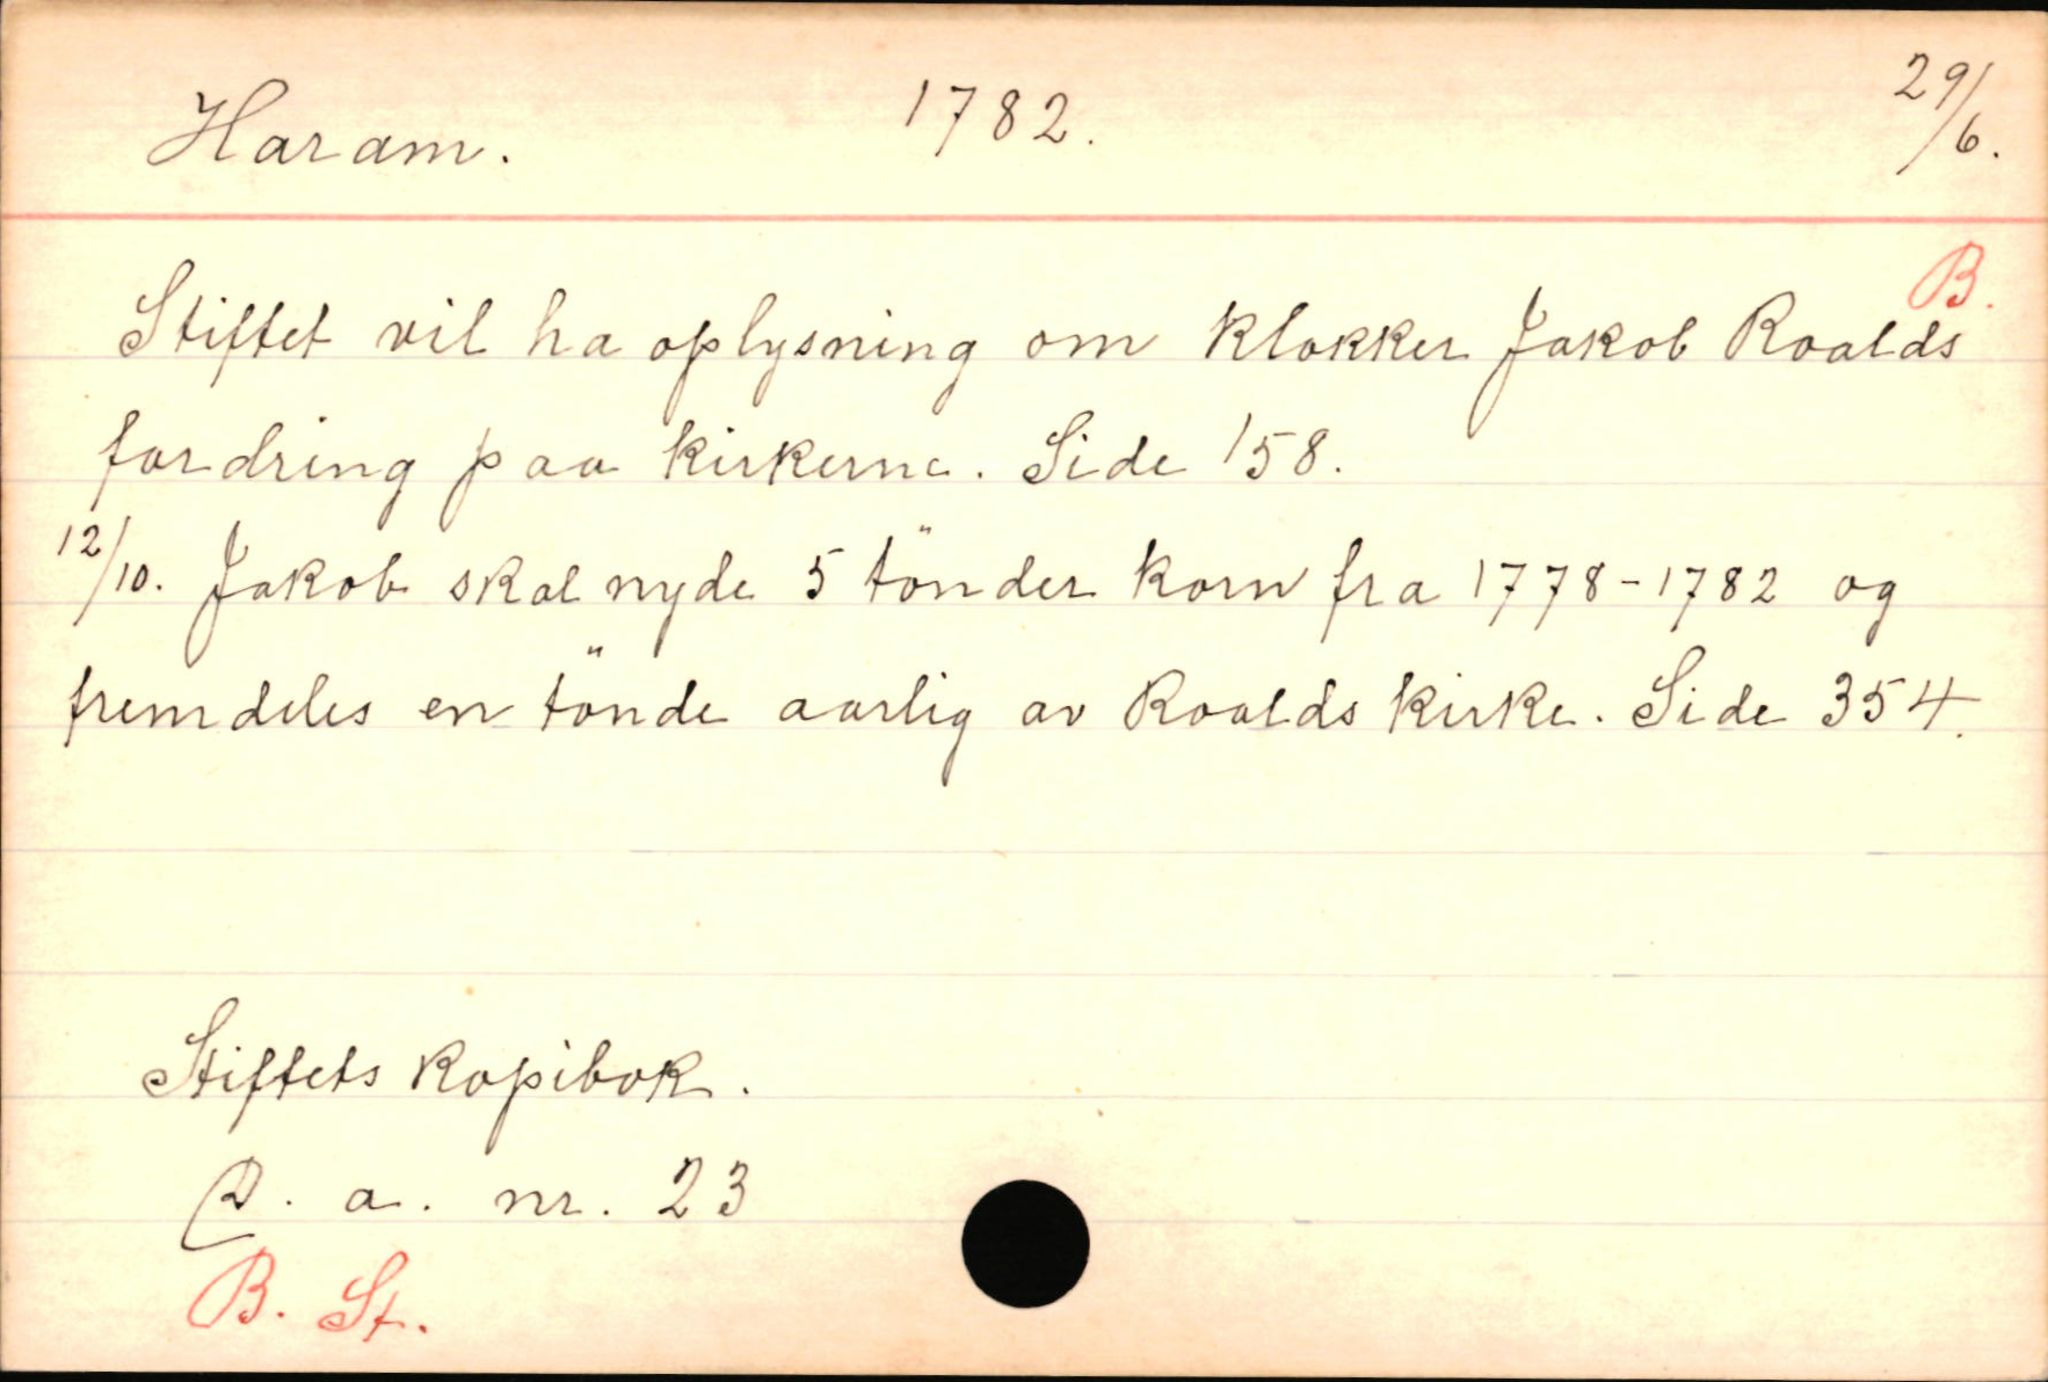 Haram. 1782. 29/6.
B.
Stiftet vil ha oplysning om klokker Jakob Roalds
fordring paa kirkerne. Side 158.
12/10. Jakob skal nyde 5 tönder korn fra 1778-1782 og
fremdeles en tönde aarlig av Roalds kirke. Side 354.
Stiftets kopibok.
R. a. nr. 23
B. St.